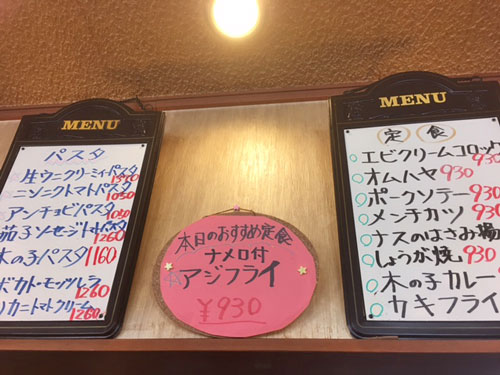 MENU
パスタ
生ウニクリーミィパスタ
1370
ニンニクトマトパスタ
1030
アンチョビパスタ
1030
茄子ソセージトマトパスタ
1260
木の子パスタ 1160
ボカド・モッツレラ
1260
カニトマトクリーム
1260
本日のおすすめ定食
ナメロ付
アジフライ
¥930
MENU
定食
エビクリームコロッケ
930
オムハヤ 930
ポークソテー 930
メンチカツ 930
ナスのはさみ揚
しょうが焼 930
木の子カレー
カキフライ